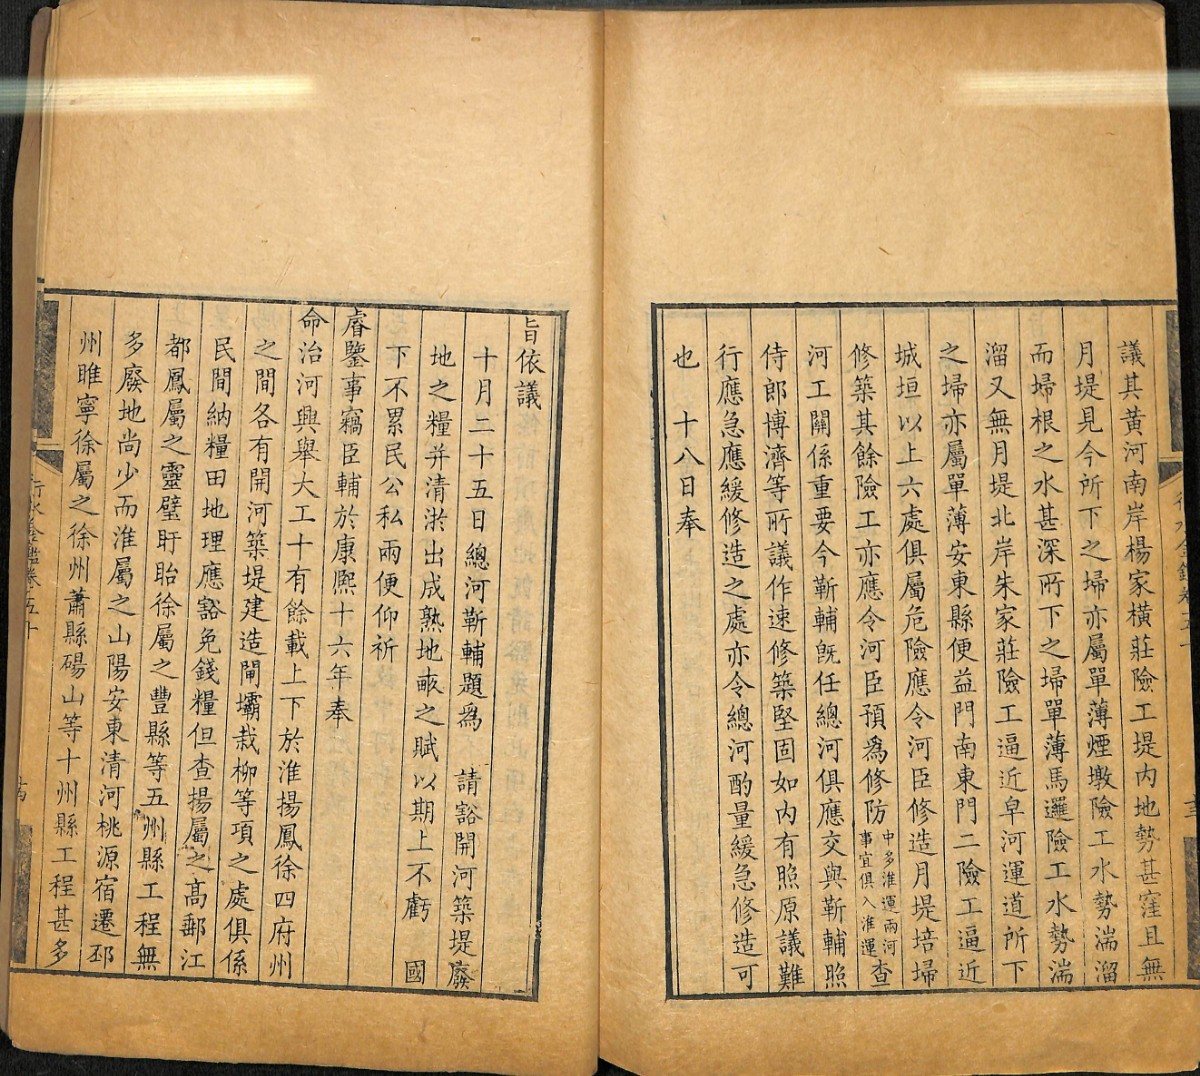 議其黃河南岸楊家橫莊險工堤內地勢甚窪且無
月堤見今所下之埽亦屬單薄煙墩險工水勢湍溜
而埽根之水甚深所下之埽單薄馬邏險工水勢湍
溜又無月堤北岸朱家莊險工逼近皁河運道所下
之埽亦屬單薄安東縣便益門南東門二險工逼近
城垣以上六處俱屬危險應令河臣修造月堤培埽
修築其餘險工亦應令河臣預爲修防中多淮運兩河事宜俱入淮運查
河工關係重要今靳輔旣任總河俱應交與靳輔照
侍郎博濟等所議作速修築堅固如內有照原議難
行應急應緩修造之處亦令總河酌量緩急修造可
也　十八日奉
旨依議
十月二十五日總河靳輔題爲　請豁開河築堤廢
地之糧并清淤出成熟地畝之賦以期上不虧　國
下不累民公私兩便仰祈
睿鑒事竊臣輔於康熙十六年奉
命治河興舉大工十有餘載上下於淮揚鳳徐四府州
之間各有開河築堤建造閘壩栽柳等項之處俱係
民間納糧田地理應豁免錢糧但查揚屬之高郵江
都鳳屬之靈璧盱眙徐屬之豐縣等五州縣工程無
多廢地尚少而淮屬之山陽安東清河桃源宿遷邳
州睢寧徐屬之徐州蕭縣碭山等十州縣工程甚多
行水金鑑卷五十